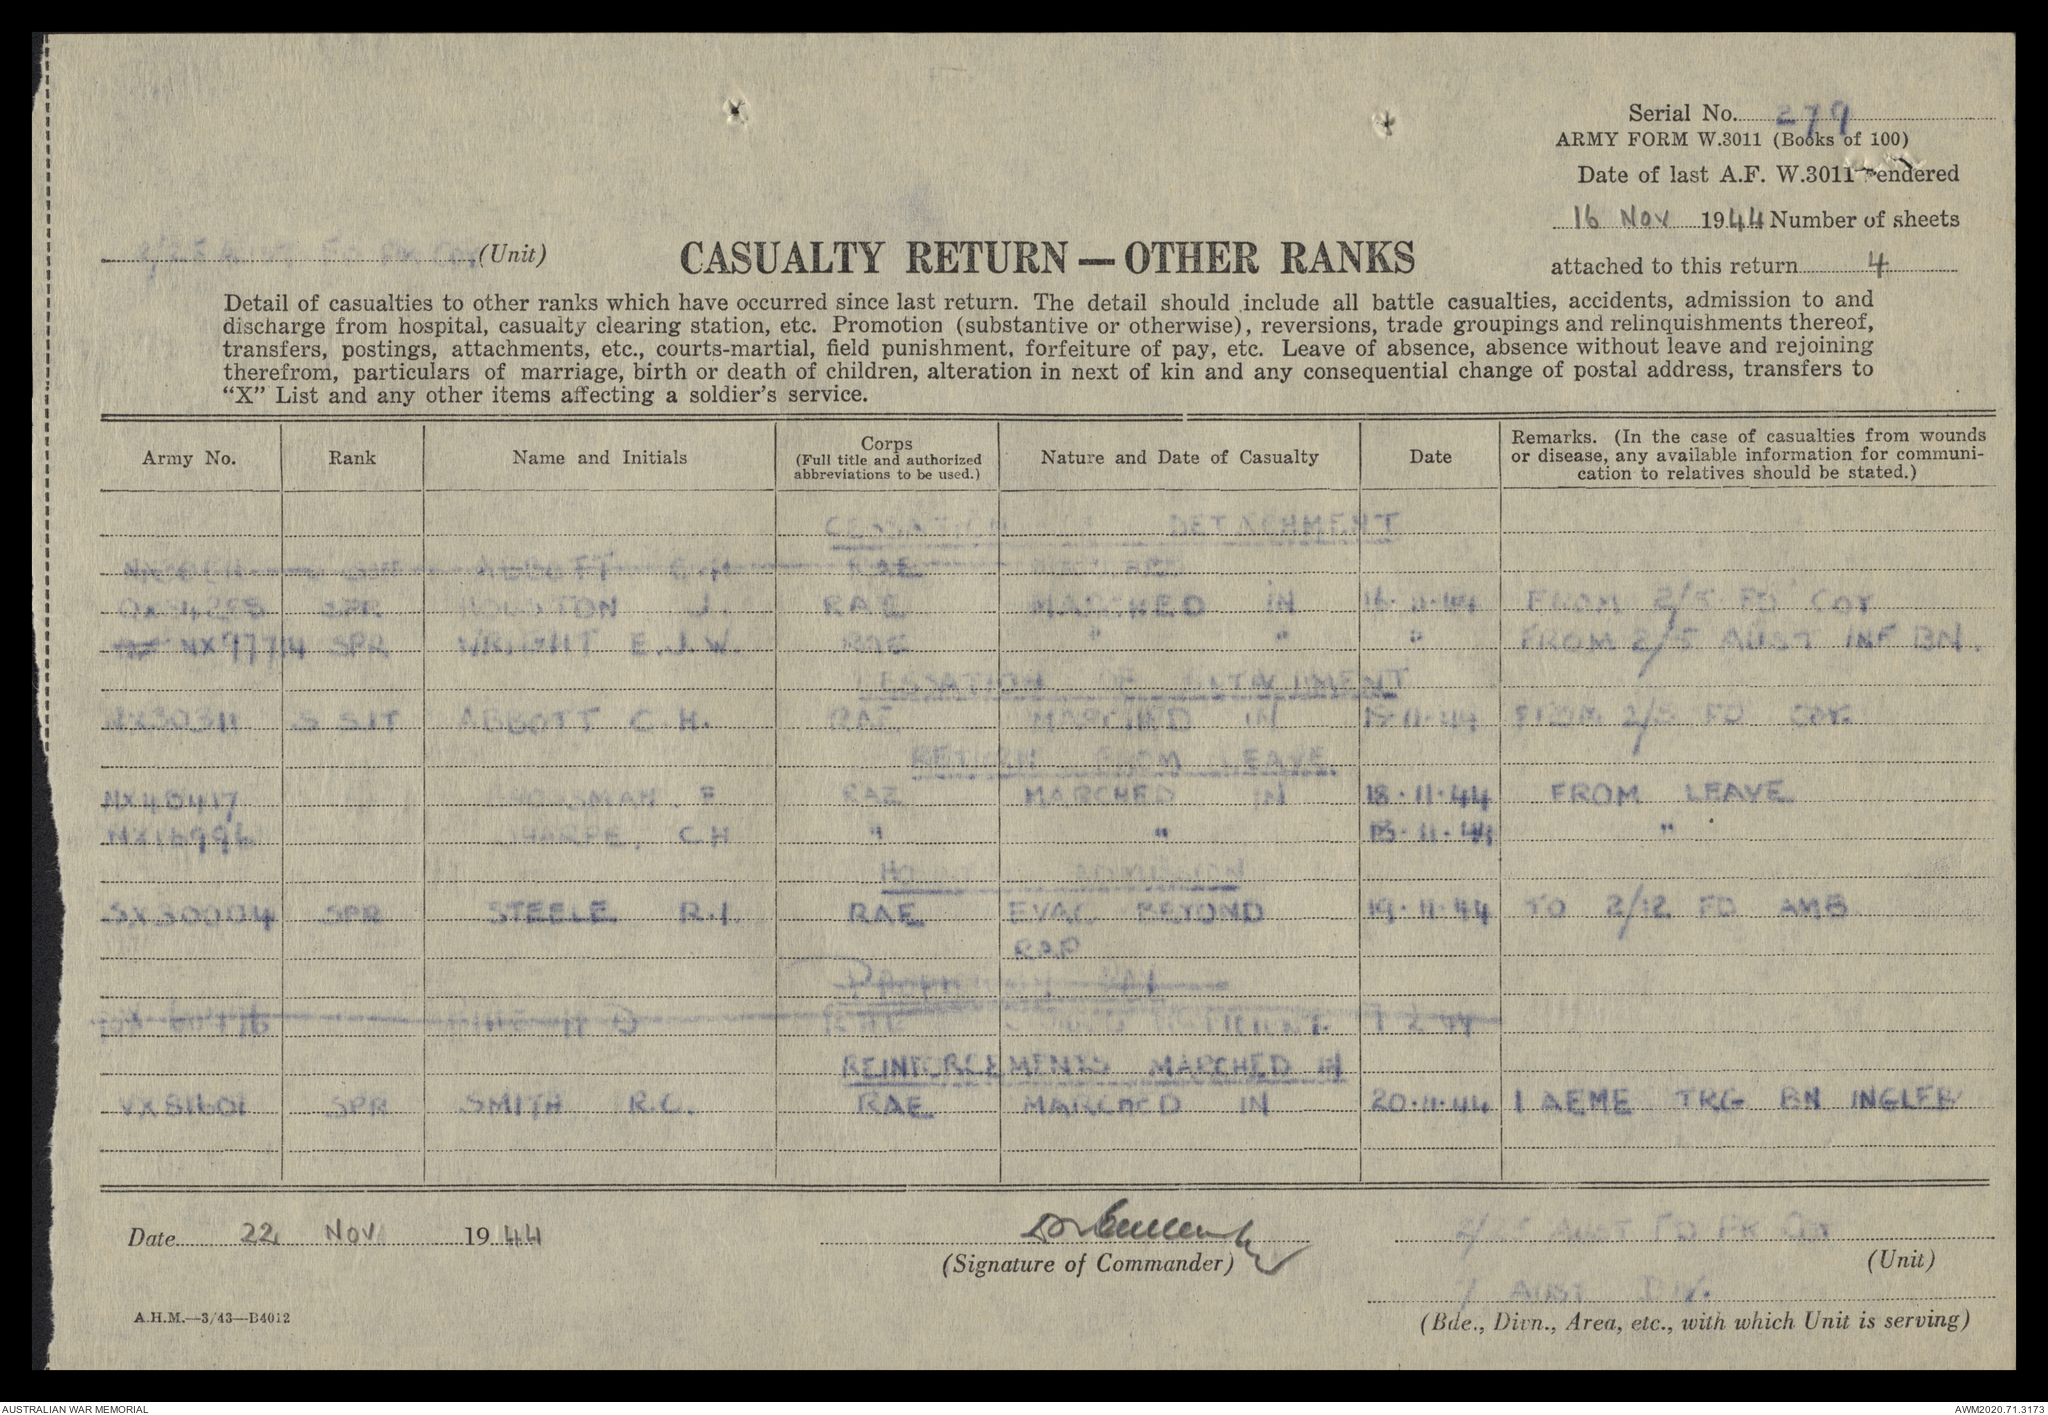 Serial No. 279
ARMY FORM W.3011 (Books of 100)
Date of last A.F. W.3011 rendered
16 Nov 1944 Number of sheets
attached to this return 4
2/25 AUST FD PK COY (Unit)
CASUALTY RETURN — OTHER RANKS
Detail of casualties to other ranks which have occurred since last return. The detail should include all battle casualties, accidents, admission to and
discharge from hospital, casualty clearing station, etc. Promotion (substantive or otherwise), reversions, trade groupings and relinquishments thereof,
transfers, postings, attachments, etc., courts-martial, field punishment, forfeiture of pay, etc. Leave of absence, absence without leave and rejoining
therefrom, particulars of marriage, birth or death of children, alteration in next of kin and any consequential change of postal address, transfers to
“X” List and any other items affecting a soldier’s service.
Army No. Rank Name and Initials Corps (Full title and authorized abbreviations to be used.) Nature and Date of Casualty Date Remarks. (In the case of casualties from wounds or disease, any available information for communication to relatives should be stated.)
CESSATION OF DETACHMENT
ABBOTT C.H. RAE MARCHED
SPR HOUSTON J. RAE MARCHED IN 16.11.44 FROM 2/5 FD COY
NX97714 SPR WRIGHT E.J.W. RAE " " " FROM 2/5 AUST INF BN.
CESSATION OF ATTACHMENT
NX30311 S SJT ABBOTT C.H. RAE MARCHED IN FROM 2/5 FD COY
RETURN FROM LEAVE.
NX40417 RAE MARCHED IN 18.11.44 FROM LEAVE
NX16996 THARPE. C H " " 18.11.44 "
HOSPITAL ADMISSION
SX30004 SPR STEELE R.I. RAE EVAC BEYOND 19.11.44 TO 2/12 FD AMB
RAP
RAE
REINFORCEMENTS MARCHED IN
VX81601 SPR SMITH R.C. RAE MARCHED IN 20.11.44 1 AEME TRG BN INGLEB
Date 22 Nov 1944
(Signature of Commander)
2/25 AUST FD PK COY
(Unit)
7 AUST DIV.
(Bde., Divn., Area, etc., with which Unit is serving)
A.H.M.—3/43—B4012
AUSTRALIAN WAR MEMORIAL
AWM2020.71.3173